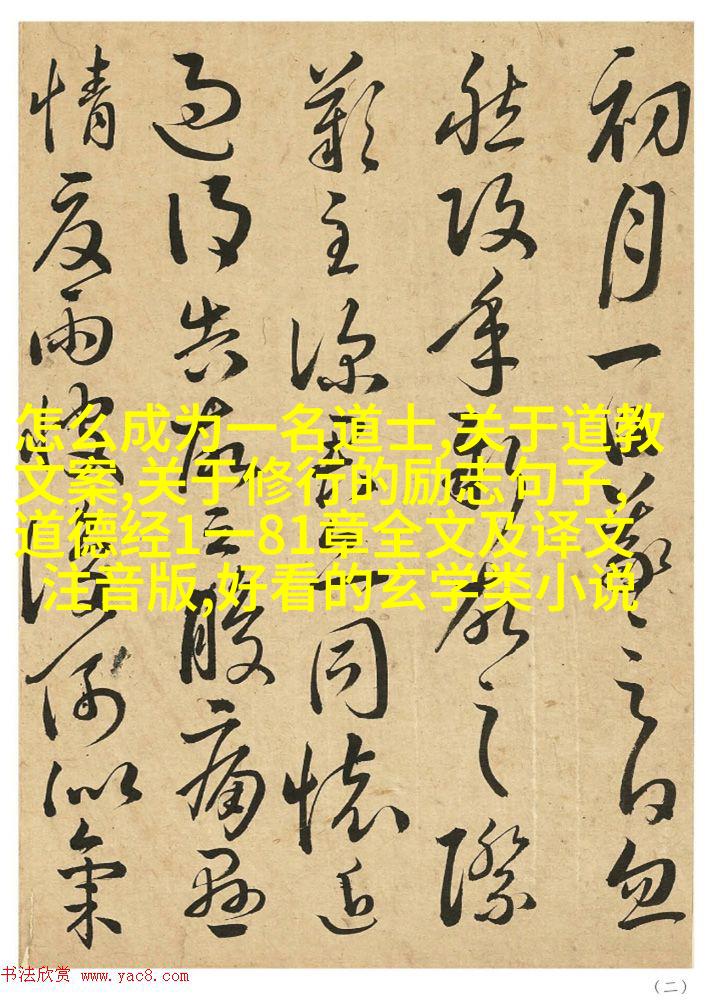 初月一日羲之白忽
然改年新故之際
歎至深君同懷近
過得告故云腹痛懸
情雨何似氣
怎么成为一名道士,关于道教
文案,关于修行的励志句子,
道德经1一81章全文及译文
注音版,好看的玄学类小说
书法欣赏 www.yac8.com
（二）